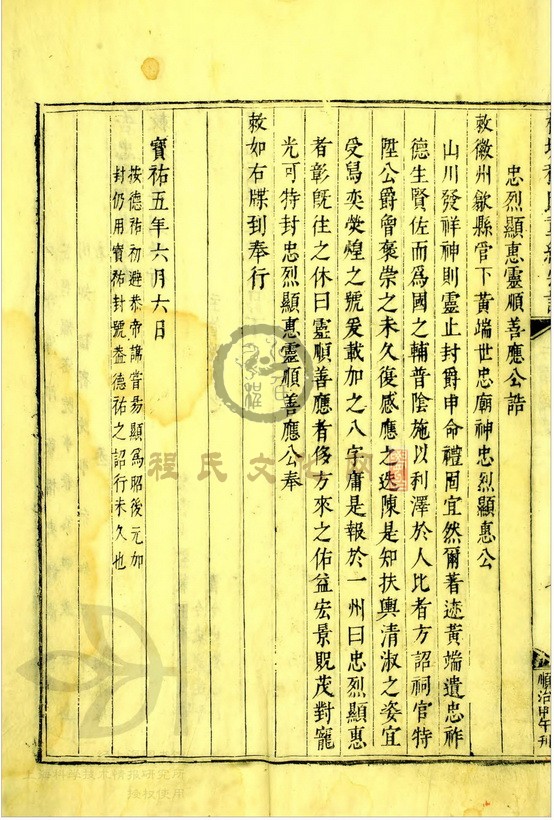 順治甲午刊
忠烈顯惠靈順善應公誥
敕徽州歙縣管下黃端世忠廟神忠烈顯惠公
山川發祥神則靈止封爵申命禮固宜然爾著迹黃端遺忠祚
德生賢佐而爲國之輔普陰施以利澤於人比者方詔祠官特
陞公爵曾褒崇之未久復感應之迭陳是知扶輿清淑之姿宜
受舄奕熒煌之號爰載加之八字庸是報於一州曰忠烈顯惠
者彰旣往之休曰靈順善應者侈方來之佑益宏景貺茂對寵
光可特封忠烈顯惠靈順善應公奉
敕如右牒到奉行
寶祐五年六月六日
按德祐初避恭帝諱嘗易顯爲昭後元加
封仍用寶祐封號蓋德祐之詔行未久也
程氏文化网
上海科学技术情报研究所
授权使用